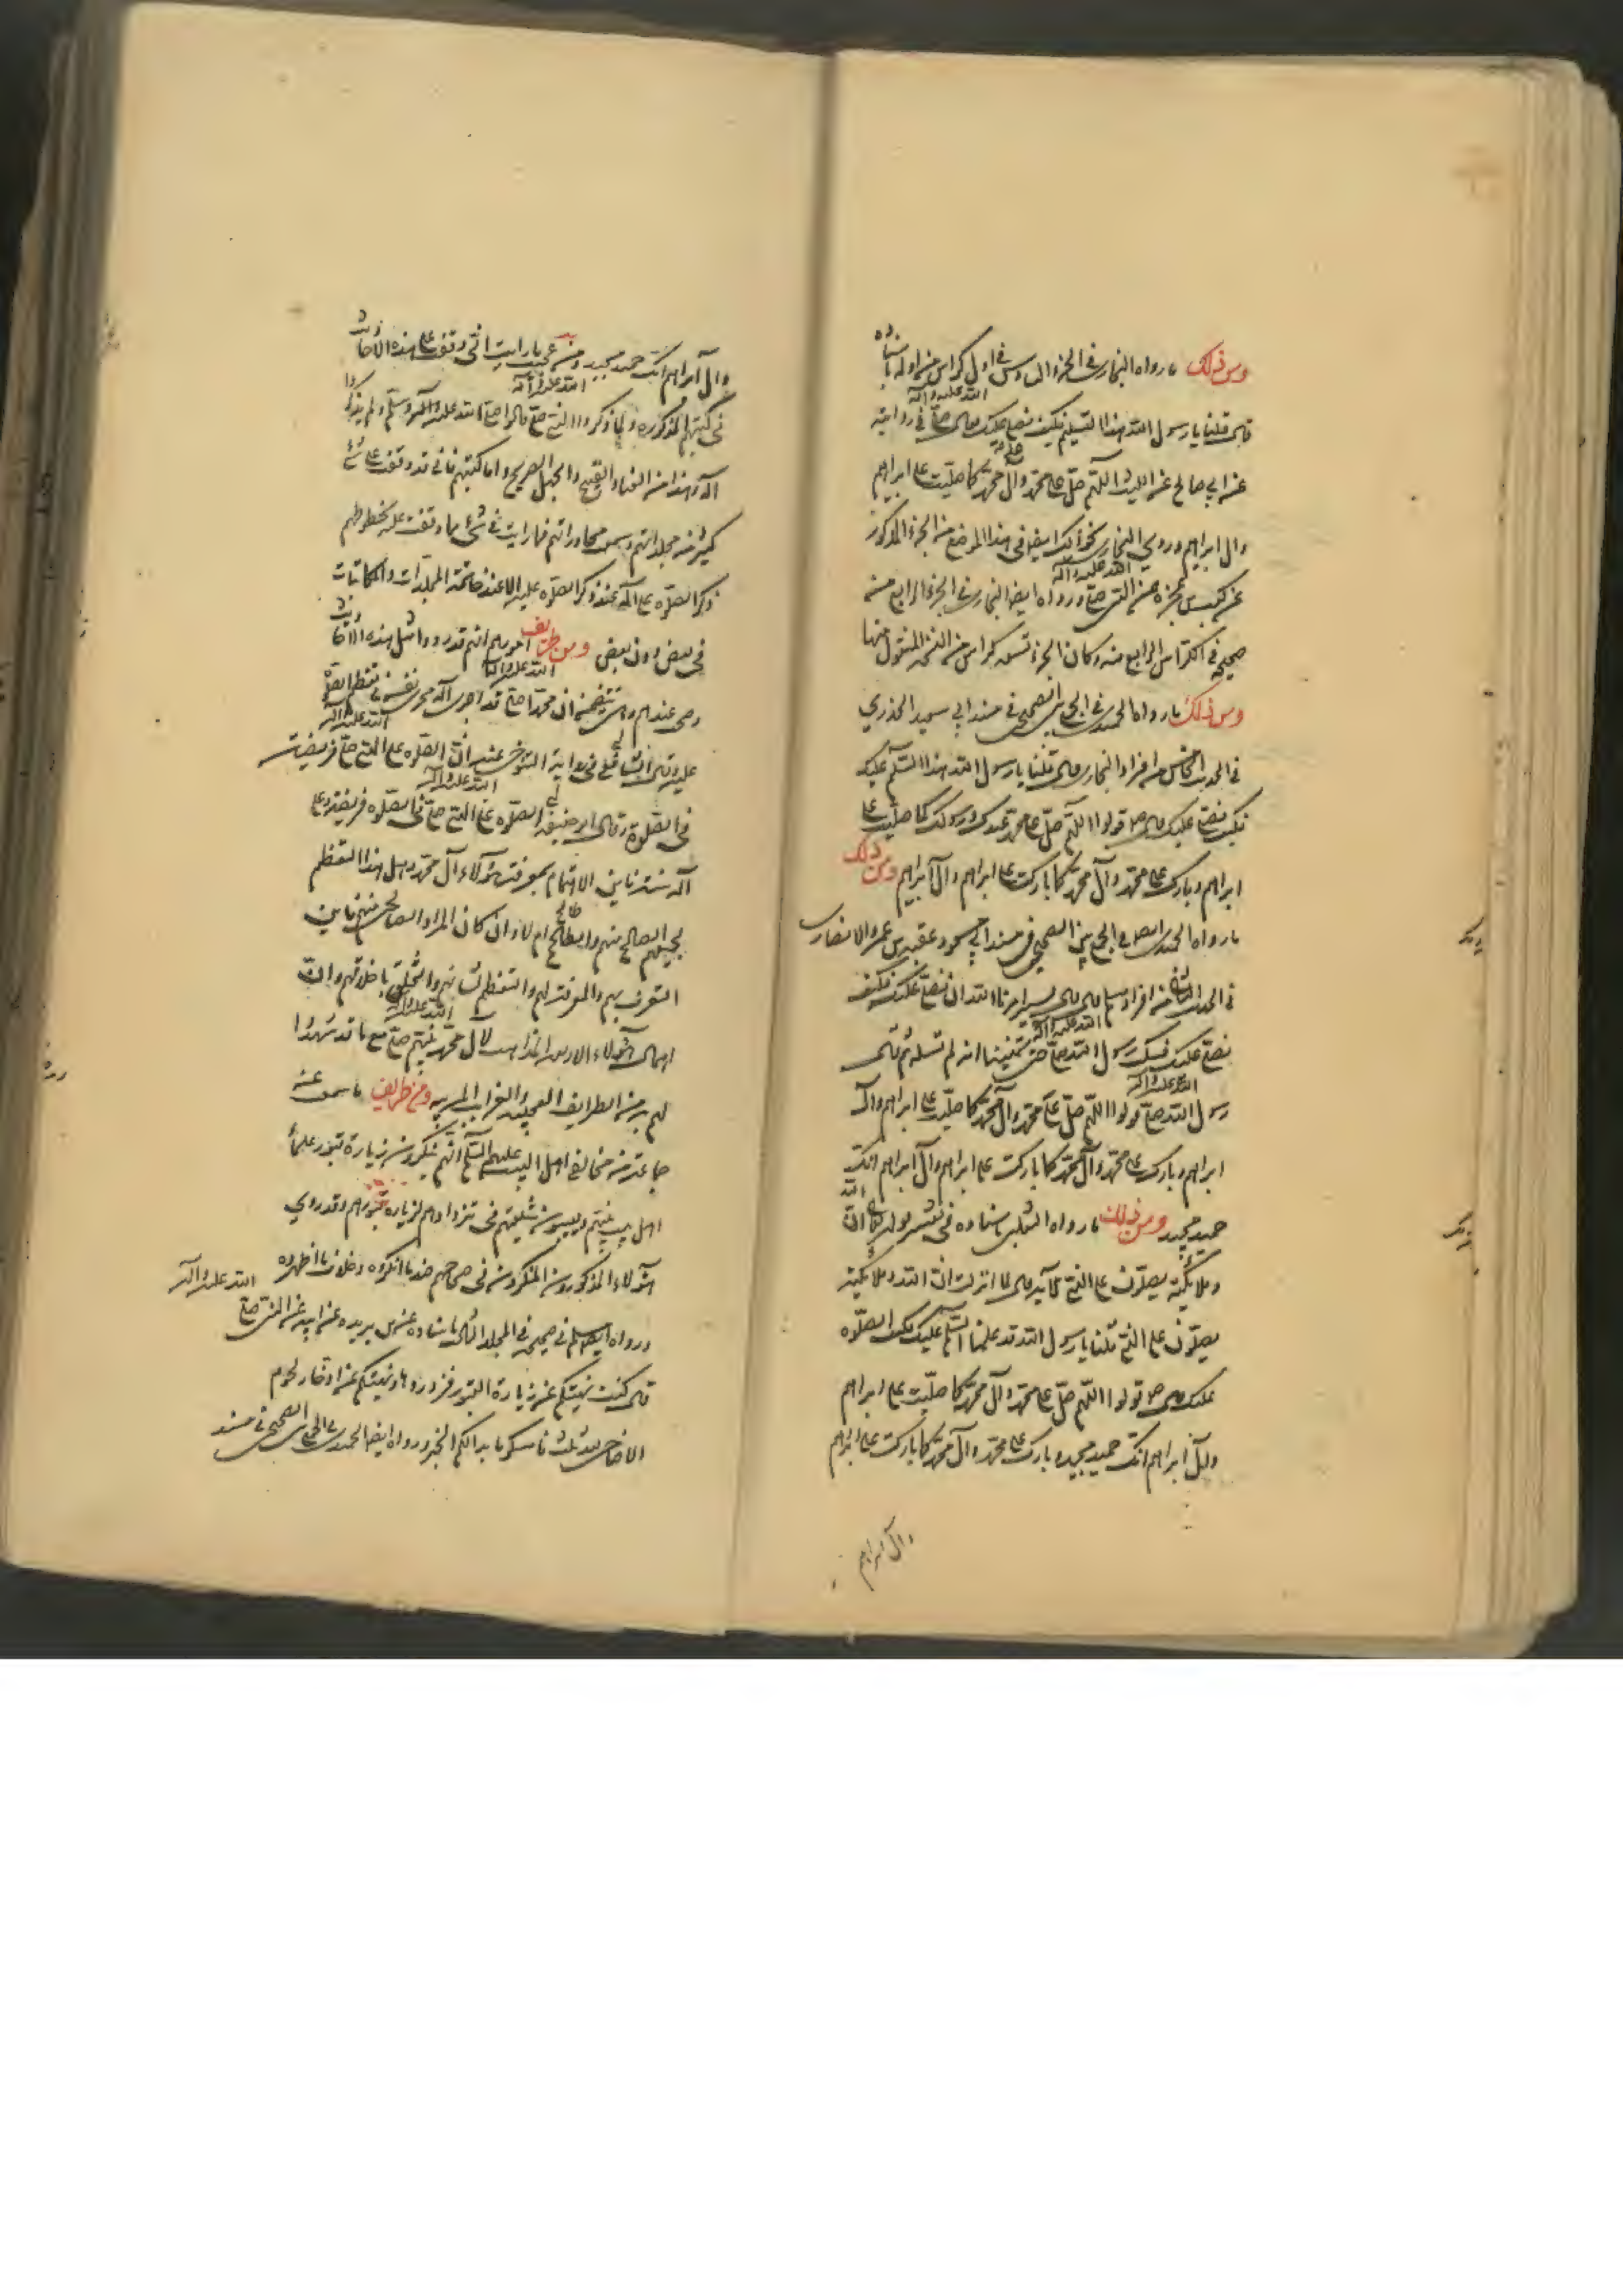 ومن ذلك ما رواه البخاري في الجزء السادس في اول كراس من اوله باسناده
قال قلنا يا رسول الله هذا التسليم فكيف نصلي عليك قال صلى الله عليه وآله في روايته
عن ابي صالح عن الليث اللهم صل على محمد وآل محمد كما صليت على ابراهيم
وال ابراهيم وروي البخاري نحو ذلك ايضا في هذا الموضع من الجزء المذكور
عن كعب بن عجره عن النبي صلى الله عليه وآله ورواه ايضا البخاري في الجزء الرابع من
صحيحه في الكراس الرابع منه وكان الجزء تسعة كراس من النسخة المنقول منها
ومن ذلك ما رواه الحميدي في الجمع بين الصحيحين في مسند ابي سعيد الخدري
في الحديث الخامس من افراد البخاري قال قلنا يا رسول الله هذا السلم عليك
فكيف نصلي عليك قال قولوا اللهم صل على محمد عبدك ورسولك كما صليت على
ابراهيم وبارك على محمد وآل محمد كما باركت على ابراهيم وآل ابراهيم ومن ذلك
ما رواه الحميدي ايضا في الجمع بين الصحيحين في مسند ابي مسعود عقبة بن عمرو الانصاري
في الحديث الثاني من افراد مسلم قال قال بشير امرنا الله ان نصلي عليك فكيف
نصلي عليك فسكت رسول الله صلى الله عليه وآله حتى تمنينا انه لم نسله ثم قال
رسول الله صلى الله عليه وآله قولوا اللهم صل على محمد وآل محمد كما صليت على ابراهيم وآل
ابراهيم وبارك على محمد وآل محمد كما باركت على ابراهيم وآل ابراهيم انك
حميد مجيد ومن ذلك ما رواه الثعلبي باسناده في تفسير قوله تعالى ان الله
وملايكته يصلون على النبي الآية قال لما انزلت ان الله وملايكته
يصلون على النبي قلنا يا رسول الله قد علمنا السلم عليك فكيف الصلوه
عليك قال قولوا اللهم صل على محمد وآل محمد كما صليت على ابراهيم
وآل ابراهيم انك حميد مجيد وبارك على محمد وآل محمد كما باركت على ابراهيم
وآل ابراهيم
وآل ابراهيم انك حميد مجيد ومن عجيب ما رايت اني وقفت على هذه الاحاديث
في كتبهم المذكوره ولما ذكروا النبي صلى الله عليه وآله قالوا صلى الله عليه وآله وسلم ولم يذكروا
آله وهذا من العناد القبيح والجهل الصريح واما كتبهم فاني قد وقفت على شئ
كثير من مجلداتهم وسمعت محاوراتهم فما رايت في شئ مما وقفت عليه بخطوطهم
ذكر الصلوه على آله عند ذكر الصلوه عليه الا عند خاتمة المجلدات والمكاتبات
في بعض دون بعض ومن طريف امورهم انهم قد رووا مثل هذه الاحاديث
وصح عندهم وهي تتضمن ان محمدا صلى الله عليه وآله قد اجرى آله مجرى نفسه في تعظيم الصلوة
عليه وقال الشافعي في رواية التنوخي عنه ان الصلوه على النبي صلى الله عليه وآله فريضة
في الصلوة وقال ابو حنيفه الصلوه على النبي صلى الله عليه وآله في الصلوه فريضة وعلى
آله سنة فاين الاهتمام بمعرفة هؤلاء آل محمد وهل هذا التعظيم
لجميعهم الصالح منهم والطالح ام لا وان كان المراد الصالحين منهم فاين
التعرف بهم والمعرفة لهم والتعظيم لشانهم والتخلق باخلاقهم وان
اهمال هؤلاء الاربعة المذاهب لآل محمد نبيهم صلى الله عليه وآله مع ما قد شهدوا
لهم به من الطرايف العجيبه والغرايب المريبه ومن طرايف ما سمعت عن
جماعة من مخالفي اهل البيت عليهم السلم انهم ينكرون زيارة قبور علماء
اهل بيت نبيهم ويعيبون شيعتهم في تردادهم لزيارة قبورهم وقد روي
هؤلاء المذكورون المنكرون في صحاحهم ضد ما انكروه وخلاف ما اظهروه
ورواه ايضا مسلم في صحيحه في المجلد الثاني باسناده عن ابن بريده عن ابيه عن النبي صلى الله عليه وآله
قال كنت نهيتكم عن زيارة القبور فزوروها ونهيتكم عن ادخار لحوم
الاضاحي فوق ثلث فامسكوا ما بدا لكم الخبر ورواه ايضا الحميدي في الجمع بين الصحيحين في مسند